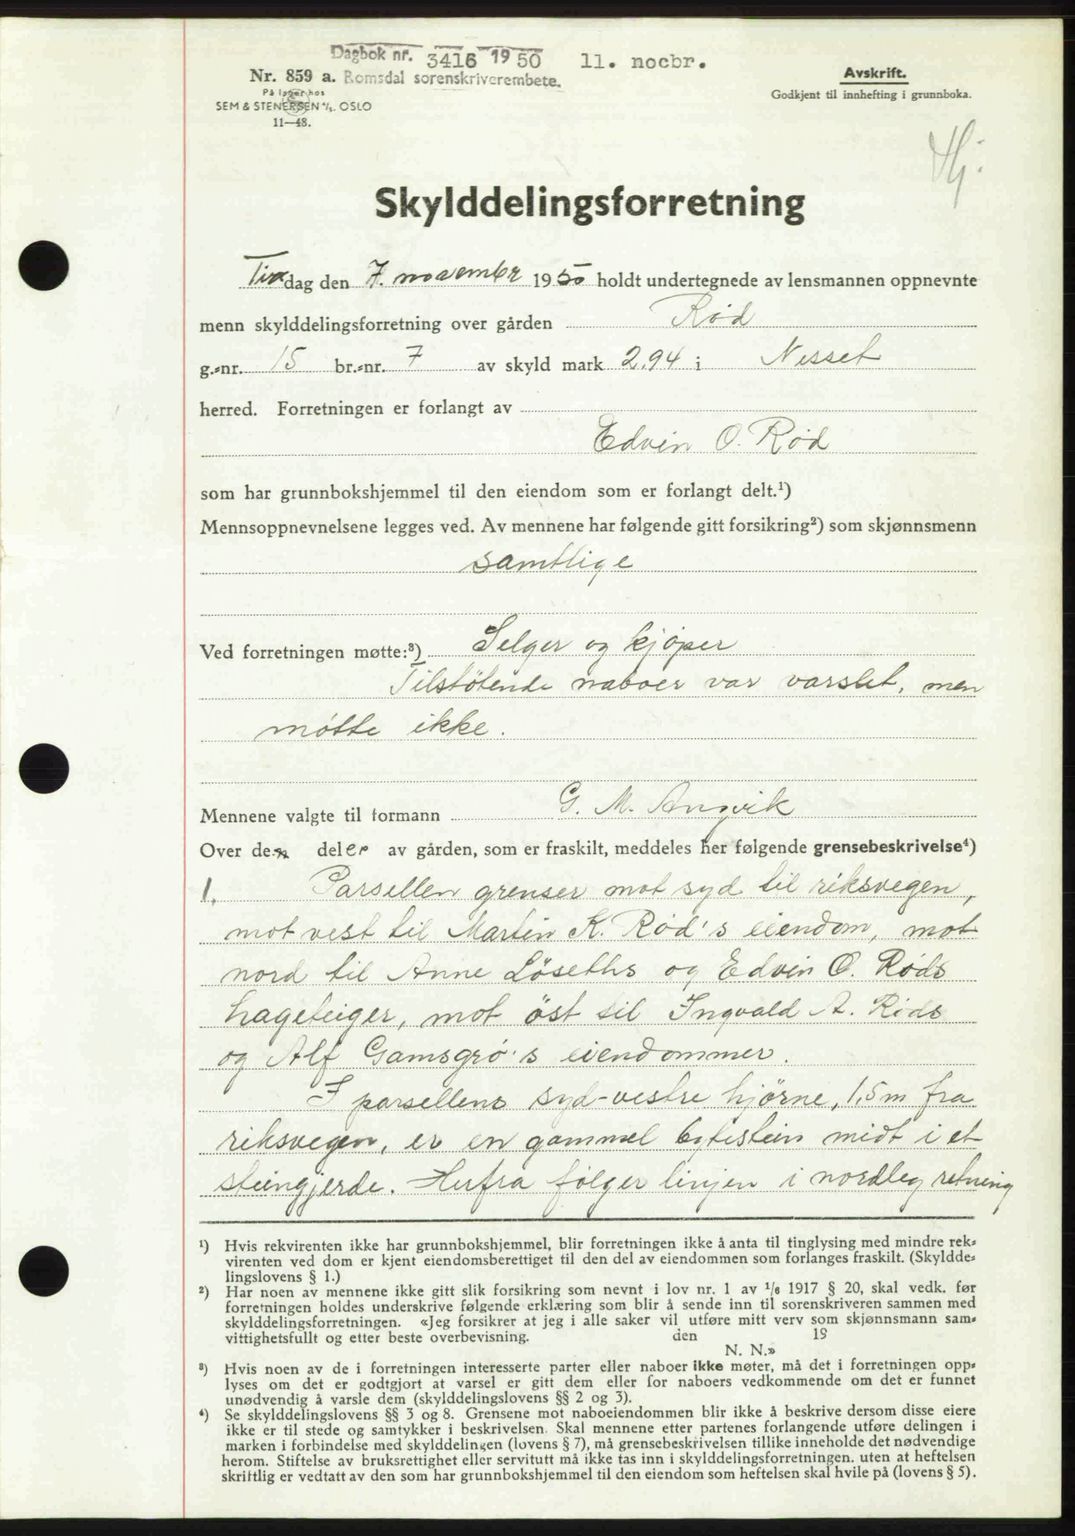 Dagbok nr. 3416 1950 11. nocbr.
Nr. 859 a. Romsdal sorenskriverembete.
På lager hos
SEM & STENERSEN A/S. OSLO
11—48.
Avskrift.
Godkjent til innhefting i grunnboka.
Hj.
Skylddelingsforretning
Tirsdag den 7. november 1950 holdt undertegnede av lensmannen oppnevnte
menn skylddelingsforretning over gården Rød
g.-nr. 15 br.-nr. 7 av skyld mark 2,94 i Nesset
herred. Forretningen er forlangt av
Edvin O. Rød
som har grunnbokshjemmel til den eiendom som er forlangt delt.¹)
Mennsoppnevnelsene legges ved. Av mennene har følgende gitt forsikring²) som skjønnsmenn
samtlige
Ved forretningen møtte:³) Selger og kjøper
Tilstøtende naboer var varslet, men
møtte ikke.
Mennene valgte til formann G. M. Angvik
Over de deler av gården, som er fraskilt, meddeles her følgende grensebeskrivelse⁴)
1. Parsellen grenser mot syd til riksvegen,
mot vest til Martin K. Rød's eiendom, mot
nord til Anne Løseths og Edvin O. Røds
hageteiger, mot öst til Ingvald A. Røds
og Alf Gamsgrø's eiendommer.
I parsellens syd-vestre hjørne, 1,5 m fra
riksvegen, er en gammel bytestein midt i et
steingjerde. Herfra følger linjen i nordleg retning
¹) Hvis rekvirenten ikke har grunnbokshjemmel, blir forretningen ikke å anta til tinglysing med mindre rek-
virenten ved dom er kjent eiendomsberettiget til den del av eiendommen som forlanges fraskilt. (Skyldde-
lingslovens § 1.)
²) Har noen av mennene ikke gitt slik forsikring som nevnt i lov nr. 1 av ¹/₆ 1917 § 20, skal vedk. før
forretningen holdes underskrive følgende erklæring som blir å sende inn til sorenskriveren sammen med
skylddelingsforretningen. «Jeg forsikrer at jeg i alle saker vil utføre mitt verv som skjønnsmann sam-
vittighetsfullt og etter beste overbevisning. den 19
N. N.»
³) Hvis noen av de i forretningen interesserte parter eller naboer ikke møter, må det i forretningen opp-
lyses om det er godtgjort at varsel er gitt dem eller for naboers vedkommende om det er funnet
unødvendig å varsle dem (skylddelingslovens §§ 2 og 3).
⁴) Se skylddelingslovens §§ 3 og 8. Grensene mot naboeiendommen blir ikke å beskrive dersom disse eiere
ikke er til stede og samtykker i beskrivelsen. Skal mennene etter partenes forlangende utføre delingen i
marken i forbindelse med skylddelingen (lovens § 7), må grensebeskrivelsen tillike inneholde det nødvendige
herom. Stiftelse av bruksrettighet eller servitutt må ikke tas inn i skylddelingsforretningen. uten at heftelsen
skriftlig er vedtatt av den som har grunnbokshjemmel til den eiendom som heftelsen skal hvile på (lovens § 5).